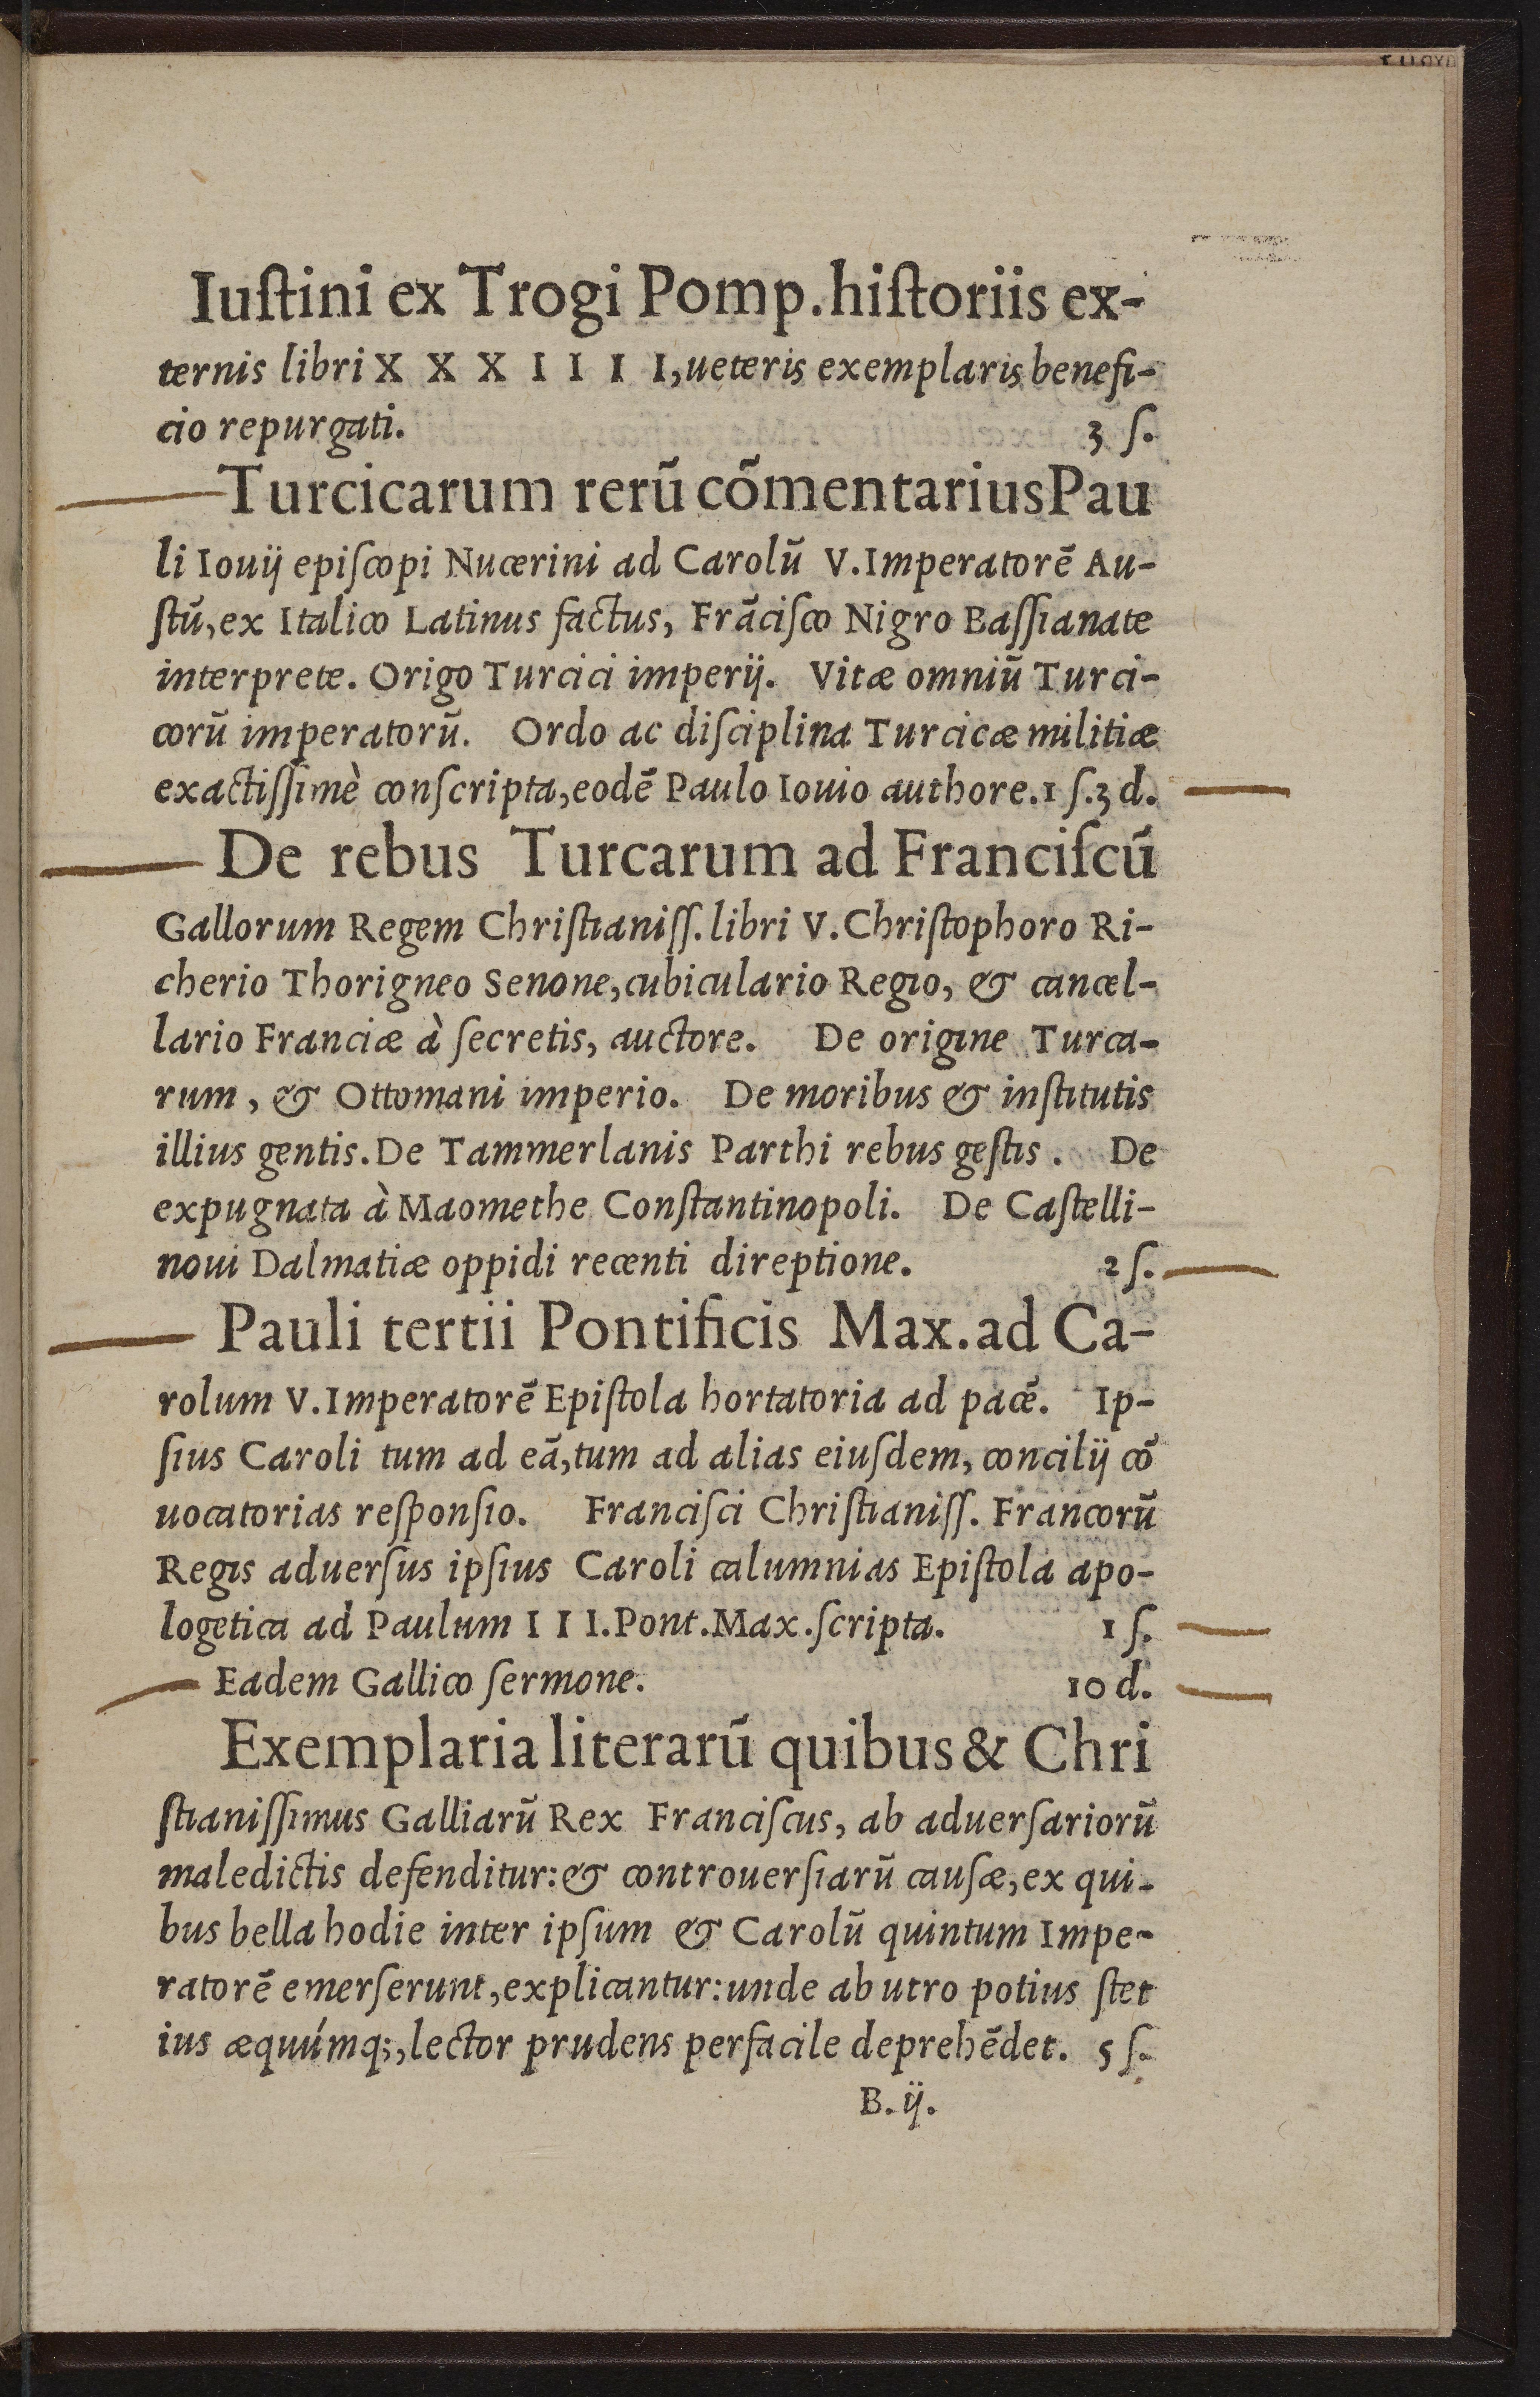 Iuſtini ex Trogi Pomp.hiſtoriis ex-
ternis libri X X X I I I I,ueteris exemplaris benefi-
cio repurgati. 3 ſ.
Turcicarum rerū cōmentariusPau
li Iouij epiſcopi Nucerini ad Carolū V.Imperatorē Au-
ſtū,ex Italico Latinus factus, Frāciſco Nigro Baſſianate
interprete. Origo Turcici imperij. Vitæ omniū Turci-
corū imperatorū. Ordo ac diſciplina Turcicæ militiæ
exactiſſimè conſcripta,eodē Paulo Iouio authore.1 ſ.3 d.
De rebus Turcarum ad Franciſcū
Gallorum Regem Chriſtianiſſ.libri V.Chriſtophoro Ri-
cherio Thorigneo Senone,cubiculario Regio, & cancel-
lario Franciæ à ſecretis, auctore. De origine Turca-
rum, & Ottomani imperio. De moribus & inſtitutis
illius gentis.De Tammerlanis Parthi rebus geſtis. De
expugnata à Maomethe Conſtantinopoli. De Caſtelli-
noui Dalmatiæ oppidi recenti direptione. 2 ſ.
Pauli tertii Pontificis Max.ad Ca-
rolum V.Imperatorē Epiſtola hortatoria ad pacē. Ip-
ſius Caroli tum ad eā,tum ad alias eiuſdem, concilij cō
uocatorias reſponſio. Franciſci Chriſtianiſſ. Francorū
Regis aduerſus ipſius Caroli calumnias Epiſtola apo-
logetica ad Paulum I I I.Pont.Max.ſcripta. 1 ſ.
Eadem Gallico ſermone. 10 d.
Exemplaria literarū quibus& Chri
ſtianiſſimus Galliarū Rex Franciſcus, ab aduerſariorū
maledictis defenditur:& controuerſiarū cauſæ,ex qui-
bus bella hodie inter ipſum & Carolū quintum Impe-
ratorē emerſerunt,explicantur:unde ab utro potius ſtet
ius æquúmq;,lector prudens perfacile deprehēdet. 5 ſ.
B. ij.